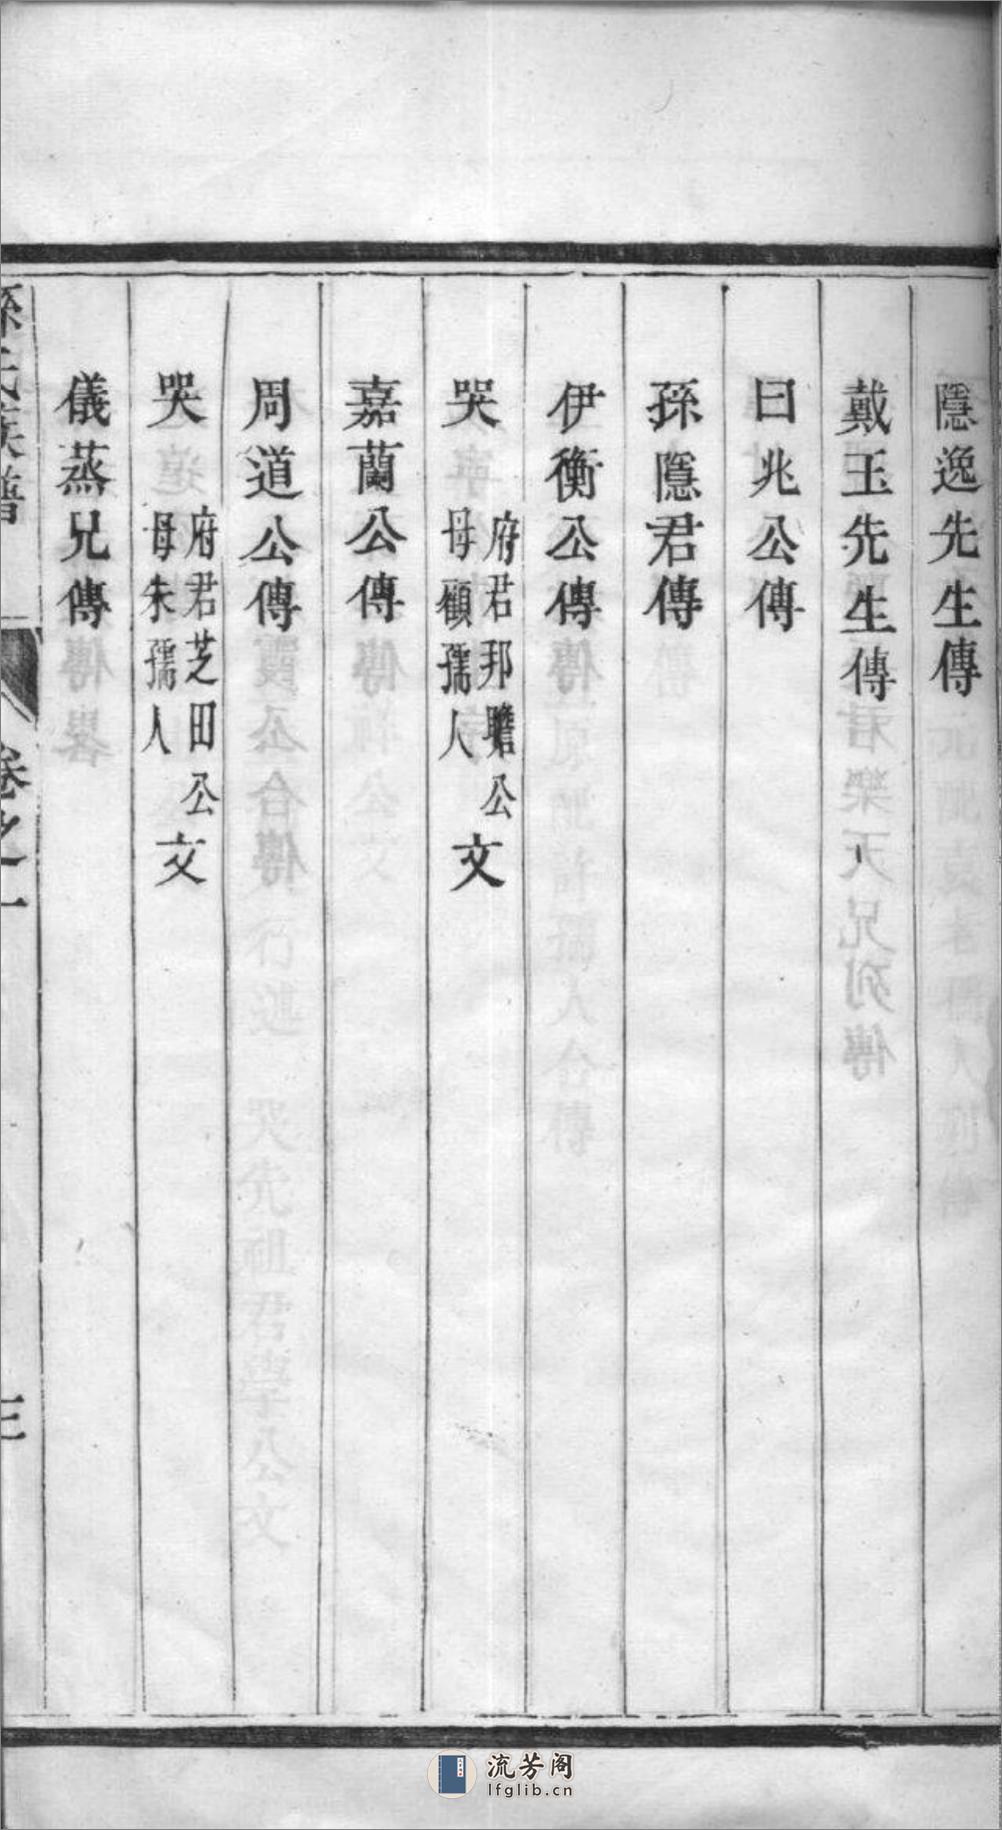 隱逸先生傳
戴玉先生傳
曰兆公傳
孫隱君傳
伊衡公傳
哭府君邦瞻公母顧孺人文
嘉蘭公傳
周道公傳
哭府君芝田公母朱孺人文
儀蒸兄傳
孫氏族譜 卷之一 三
流芳阁
lfglib.cn